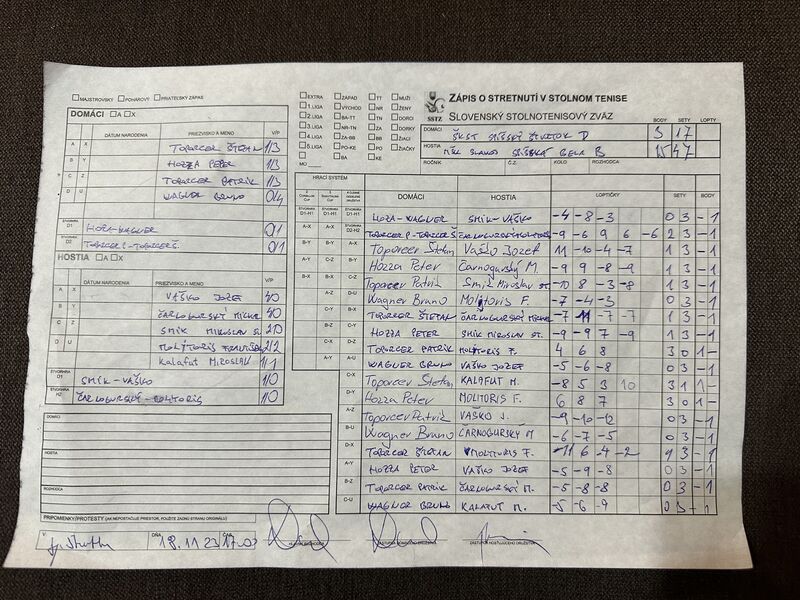 MAJSTROVSKÝ POHAROVÝ PRIATEĽSKÝ ZÁPAS
EXTRA ZÁPAD TT MUŽI
1.LIGA VÝCHOD NR ŽENY
2.LIGA BA-TT TN DORCI
3.LIGA NR-TN ZA DORKY
4.LIGA ZA-BB BB ŽIACI
5.LIGA PO-KE PO ŽIAČKY
MO BA KE
SSTZ
ZÁPIS O STRETNUTÍ V STOLNOM TENISE
SLOVENSKÝ STOLNOTENISOVÝ ZVÄZ
BODY SETY LOPTY
DOMÁCI ŠKST SPIŠSKÝ ŠTVRTOK D 3 17
HOSTIA MŠK SLAVOJ SPIŠSKÁ BELÁ B 15 47
ROČNÍK Č.Z. KOLO ROZHODCA
DOMÁCI A X
DÁTUM NARODENIA PRIEZVISKO A MENO V/P
A X TOPORCER ŠTEFAN 1/3
B Y HOZZA PETER 1/3
C Z TOPORCER PATRIK 1/3
D U WAGNER BRUNO 0/4
ŠTVORHRA D1 HOZZA-WAGNER 0/1
ŠTVORHRA D2 TOPORCER P-TOPORCER Š 0/1
HOSTIA A X
DÁTUM NARODENIA PRIEZVISKO A MENO V/P
A X VAŠKO JOZEF 4/0
B Y ČARNOGURSKÝ MICHAL 4/0
C Z SMIK MIROSLAV ST. 2/0
D U MOLITORIS FRANTIŠEK 2/2
Kalafut MIROSLAV 1/1
ŠTVORHRA D1 SMIK-VAŠKO 1/0
ŠTVORHRA H2 ČARNOGURSKÝ-MOLITORIS 1/0
DOMÁCI
HOSTIA
ROZHODCA
PRIPOMIENKY/PROTESTY (AK NEPOSTAČUJE PRIESTOR, POUŽITE ZADNÚ STRANU ORIGINÁLU)
HRACÍ SYSTÉM
DOMÁCI HOSTIA LOPTIČKY SETY BODY
D1-H1 D1-H1 D1-H1 HOZA-WAGNER SMIK-VAŠKO -4 -8 -3 0 3 -1
A-X A-X D2-H2 TOPORCER P-TOPORCER Š -9 -6 9 6 -6 2 3 -1
B-Y B-Y A-X Toporcer Štefan Vaško Jozef 11 -10 -4 -7 1 3 -1
A-Y C-Z B-Y Hozza Peter Čarnogurský M. -9 9 -8 -9 1 3 -1
B-X B-X C-Z Toporcer Patrik Smik Miroslav st. -10 8 -3 -8 1 3 -1
A-Z D-U Wagner Bruno Molitoris F. -7 -4 -3 0 3 -1
B-X TOPORCER ŠTEFAN ČARNOGURSKÝ MICHAL -7 11 -7 -7 1 3 -1
C-Y HOZZA PETER SMIK MIROSLAV ST. -9 -9 7 -9 1 3 -1
B-Z TOPORCER PATRIK MOLITORIS F. 4 6 8 3 0 1 -
A-Y WAGNER BRUNO VAŠKO JOZEF -5 -6 -8 0 3 -1
C-X Toporcer Štefan KALAFUT M. -8 5 3 10 3 1 1 -
D-Y Hozza Peter MOLITORIS F. 6 8 7 3 0 1 -
A-Z Toporcer Patrik VAŠKO J. -9 -10 -12 0 3 -1
B-U Wagner Bruno ČARNOGURSKÝ M -6 -7 -5 0 3 -1
D-X TOPORCER ŠTEFAN MOLITORIS F. -11 6 -4 -2 1 3 -1
A-Y HOZZA PETER VAŠKO JOZEF -5 -9 -8 0 3 -1
B-Z TOPORCER PATRIK ČARNOGURSKÝ M. -5 -8 -8 0 3 -1
C-U WAGNER BRUNO KALAFUT M. -5 -6 -9 0 3 -1
V DŇA 18.11.23 ČAS 17.00